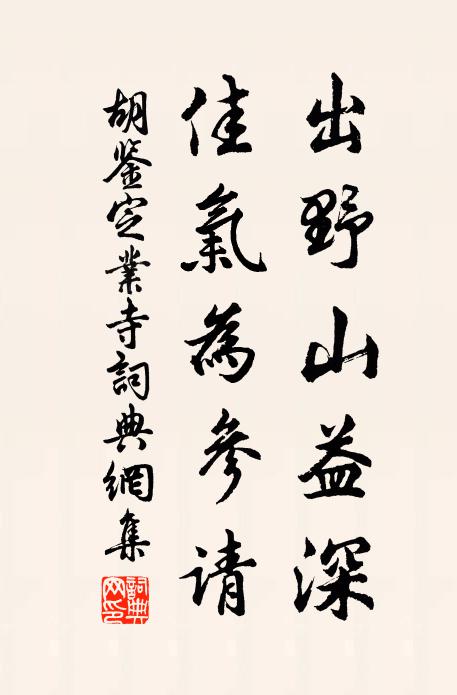 出野山益深
佳氣為參请
胡鉴定業寺詞典網集
詞典网印